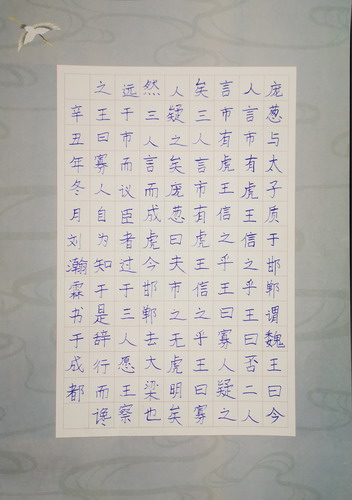 庞葱与太子质于邯郸谓魏王曰今
人言市有虎王信之乎王曰否二人
言市有虎王信之乎王曰寡人疑之
矣三人言市有虎王信之乎王曰寡
人疑之矣庞葱曰夫市之无虎明矣
然三人言而成虎今邯郸去大梁也
远于市而议臣者过于三人愿王察
之王曰寡人自为知于是辞行而谗
辛丑年冬月刘瀚霖书于成都